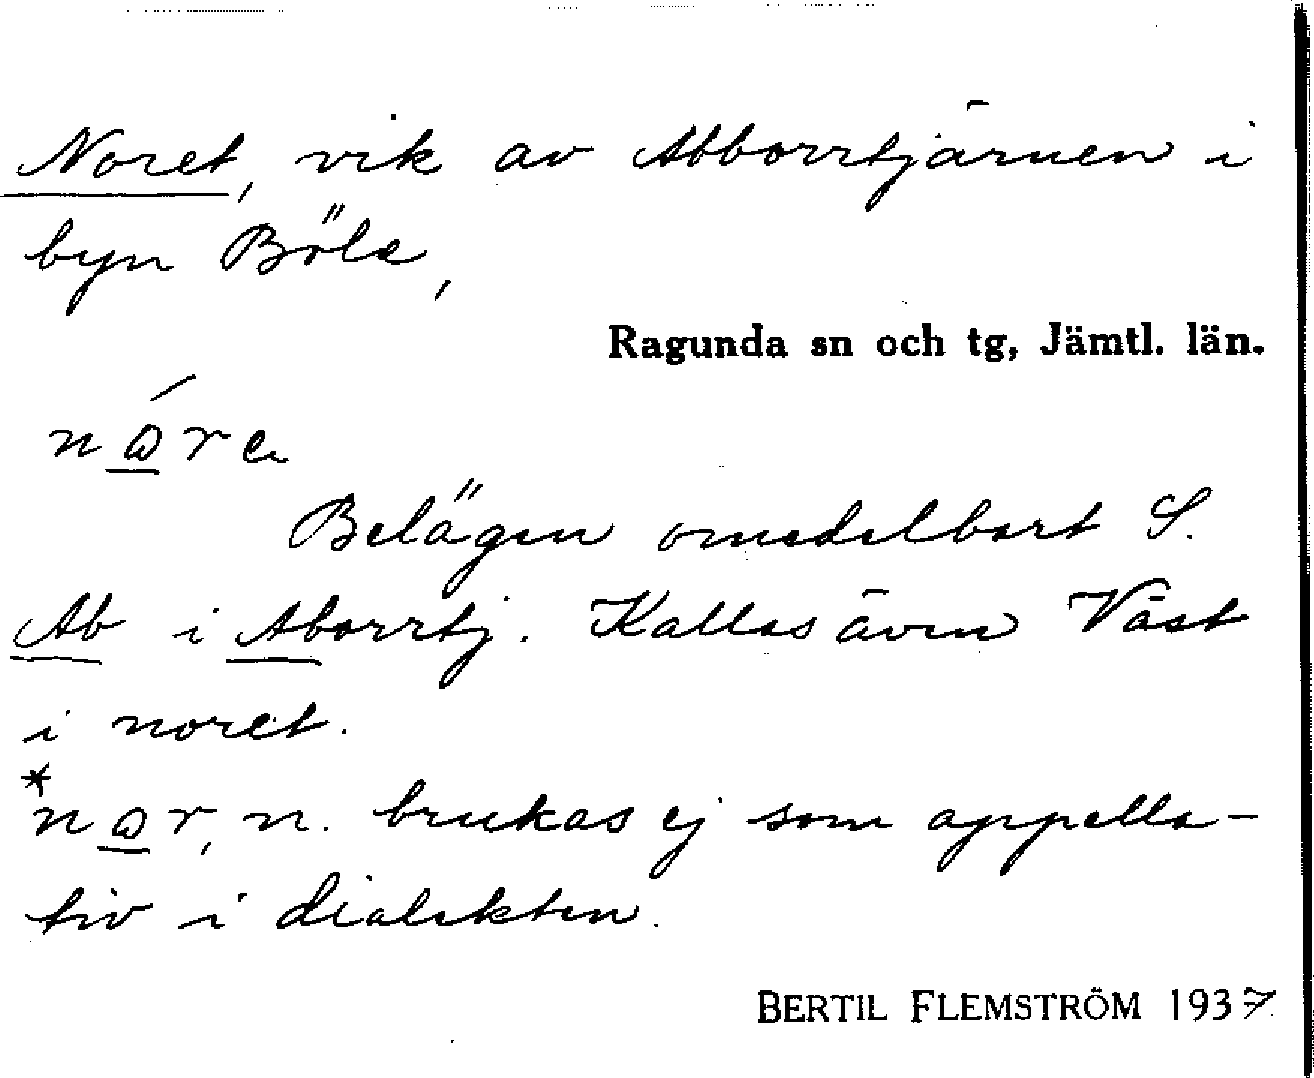 Noret, vik av Abborrtjärnen i
byn Böle,
Ragunda sn och tg, Jämtl. län.
Belägen omedelbart S.
Ab i Aborrtj. Kallas även Väst
i noret.
n. brukas ej som appella-
tiv i dialekten.
BERTIL FLEMSTRÖM 1937